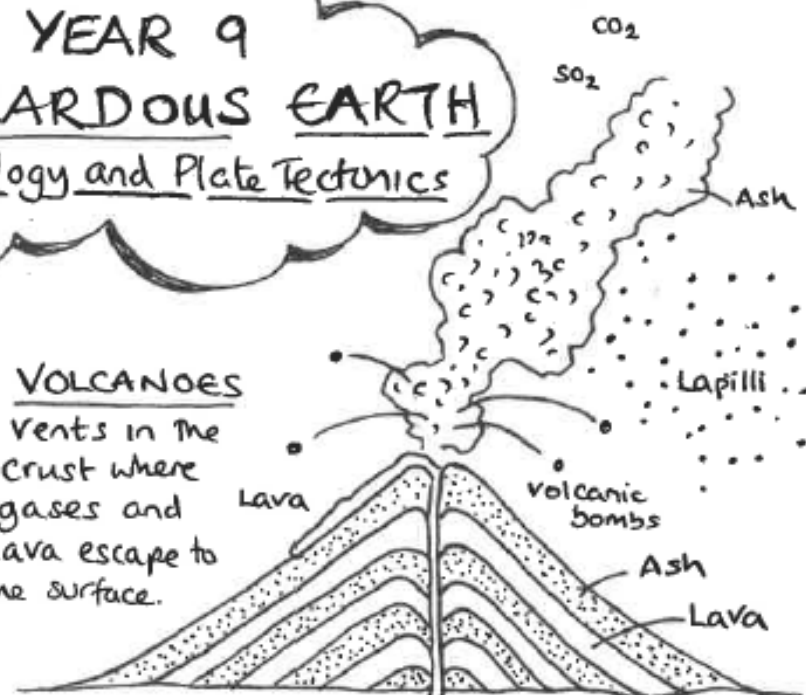 YEAR 9
ARDOUS EARTH
logy and Plate Tectonics
CO₂
SO₂
Ash
Lapilli
VOLCANOES
vents in the
crust where
gases and
ava escape to
he surface.
Lava
volcanic
bombs
Ash
Lava